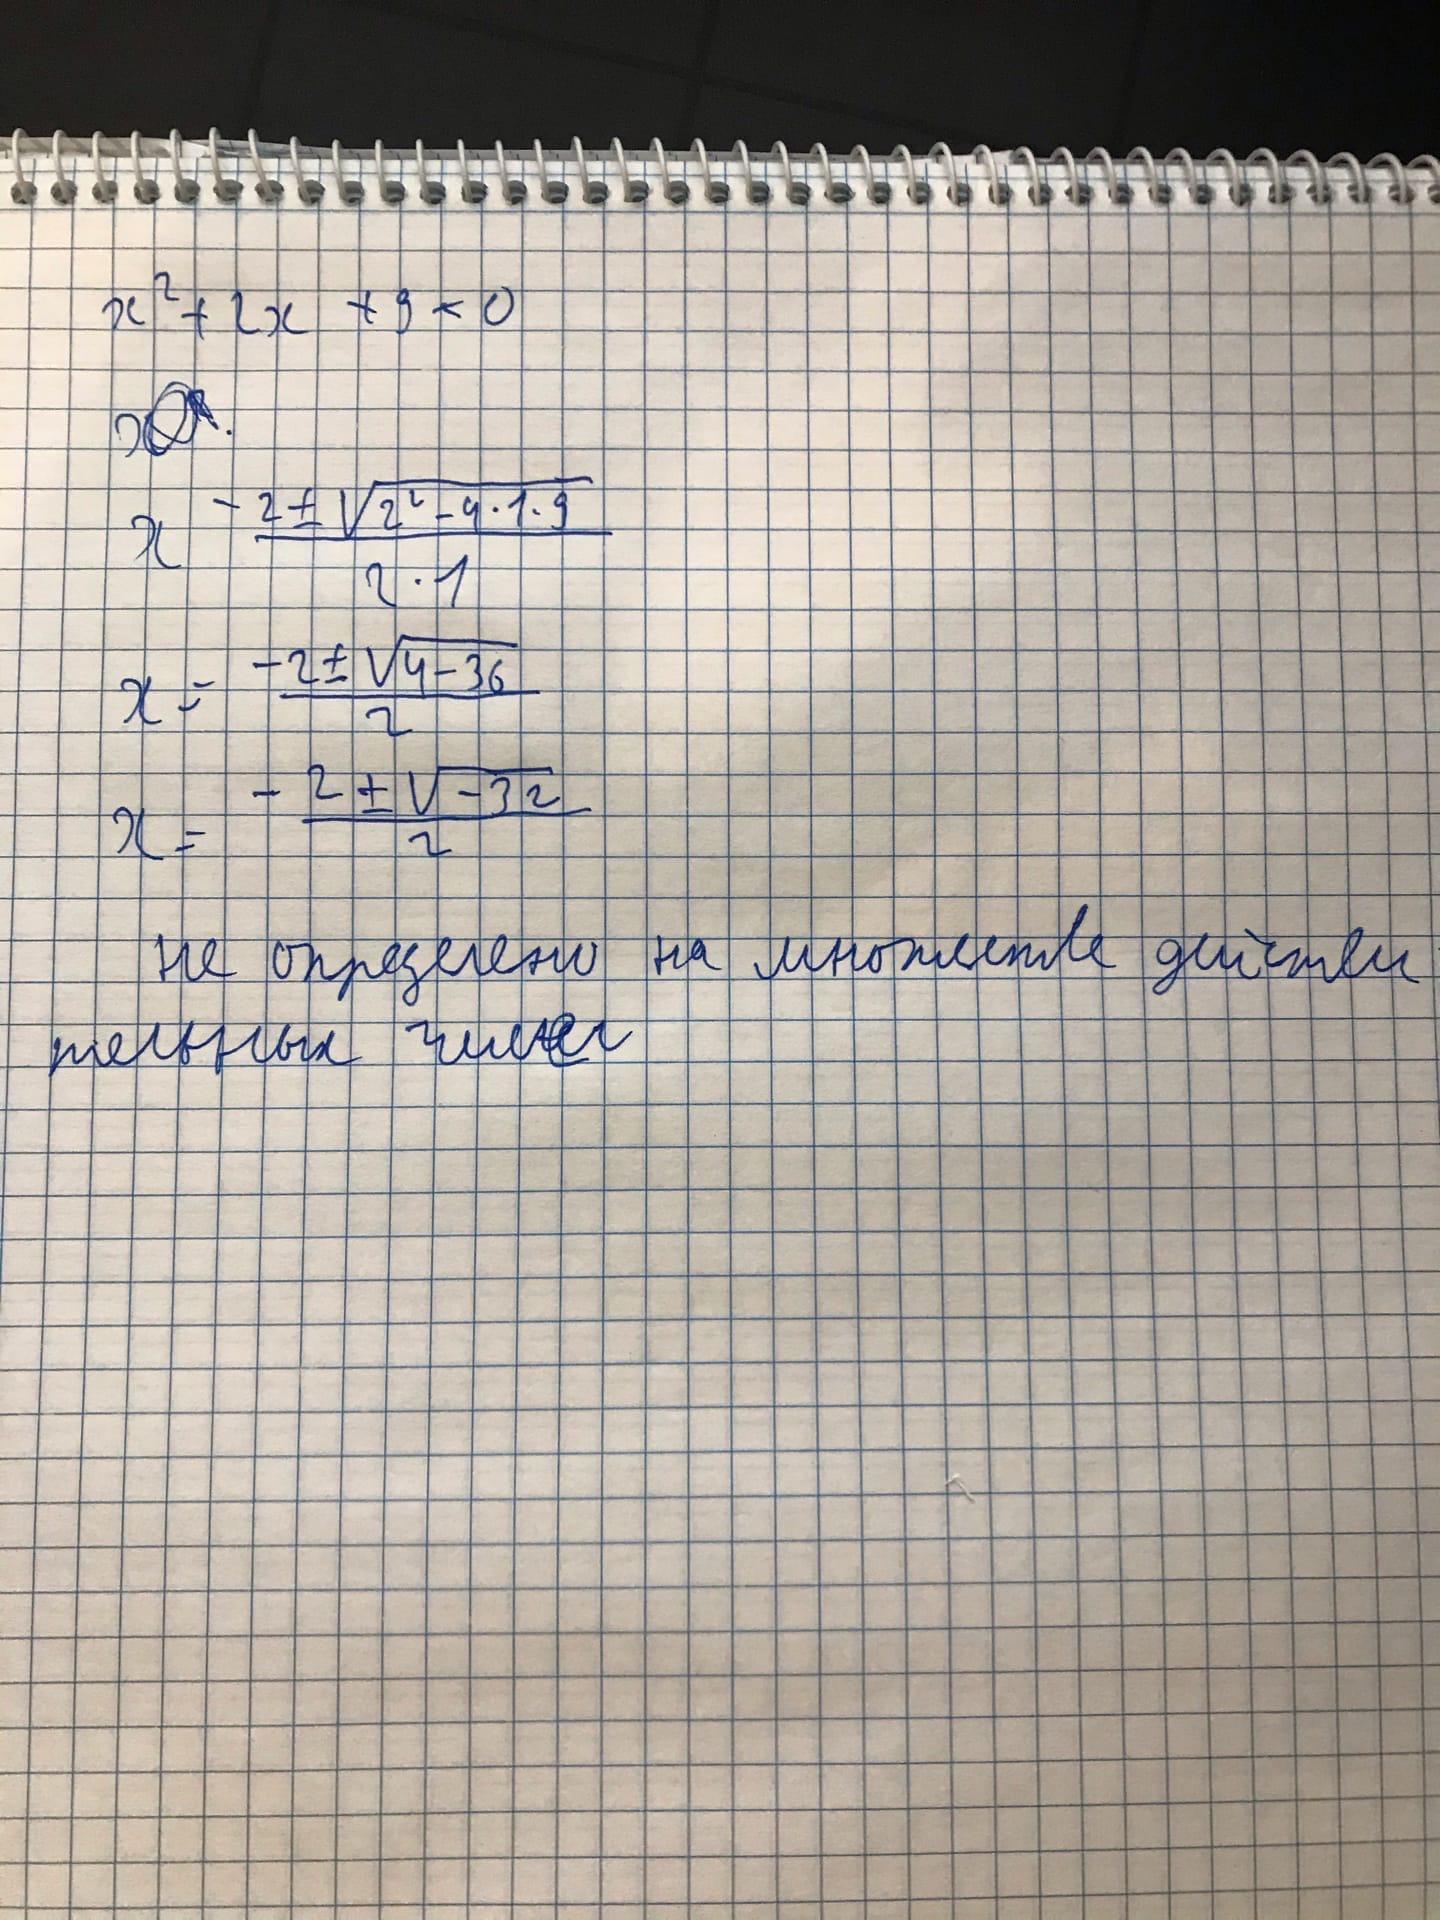 x² + 2x + 9 < 0
x
x -2 ± √(2² - 4 · 1 · 9) / 2 · 1
x = -2 ± √(4 - 36) / 2
x = -2 ± √(-32) / 2
не определено на множестве действи
тельных чисел